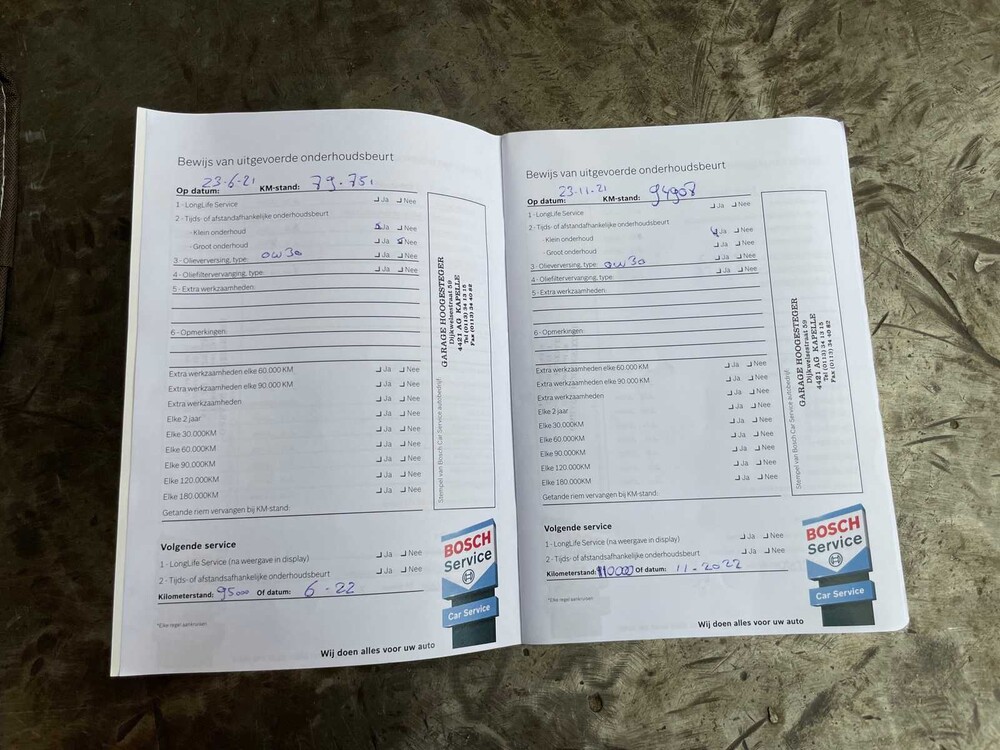 Bewijs van uitgevoerde onderhoudsbeurt
Op datum: 23-6-21 KM-stand: 79.751
1 - LongLife Service Ja Nee
2 - Tijds- of afstandafhankelijke onderhoudsbeurt
- Klein onderhoud Ja Nee
- Groot onderhoud Ja Nee
3 - Olieverversing, type: 0W30 Ja Nee
4 - Oliefiltervervanging, type: Ja Nee
5 - Extra werkzaamheden:
6 - Opmerkingen:
Extra werkzaamheden elke 60.000 KM Ja Nee
Extra werkzaamheden elke 90.000 KM Ja Nee
Extra werkzaamheden Ja Nee
Elke 2 jaar Ja Nee
Elke 30.000KM Ja Nee
Elke 60.000KM Ja Nee
Elke 90.000KM Ja Nee
Elke 120.000KM Ja Nee
Elke 180.000KM Ja Nee
Getande riem vervangen bij KM-stand:
Stempel van Bosch Car Service autobedrijf
GARAGE HOOGESTEGER
Dijkwelsestraat 59
4421 AG KAPELLE
Tel (0113) 34 13 15
Fax (0113) 34 40 82
Volgende service
1 - LongLife Service (na weergave in display) Ja Nee
2 - Tijds- of afstandsafhankelijke onderhoudsbeurt Ja Nee
Kilometerstand: 95000 Of datum: 6-22
*Elke regel aankruisen
BOSCH
Service
Car Service
Wij doen alles voor uw auto
Bewijs van uitgevoerde onderhoudsbeurt
Op datum: 23-11-21 KM-stand: 94908
1 - LongLife Service Ja Nee
2 - Tijds- of afstandafhankelijke onderhoudsbeurt
- Klein onderhoud Ja Nee
Groot onderhoud Ja Nee
3 - Olieverversing, type: 0W30 Ja Nee
4 - Oliefiltervervanging, type: Ja Nee
5 - Extra werkzaamheden:
6 - Opmerkingen:
Extra werkzaamheden elke 60.000 KM Ja Nee
Extra werkzaamheden elke 90.000 KM Ja Nee
Extra werkzaamheden Ja Nee
Elke 2 jaar Ja Nee
Elke 30.000KM Ja Nee
Elke 60.000KM Ja Nee
Elke 90.000KM Ja Nee
Elke 120.000KM Ja Nee
Elke 180.000KM Ja Nee
Getande riem vervangen bij KM-stand:
Stempel van Bosch Car Service autobedrijf
GARAGE HOOGESTEGER
Dijkwelsestraat 59
4421 AG KAPELLE
Tel (0113) 34 13 15
Fax (0113) 34 40 82
Volgende service
1 - LongLife Service (na weergave in display) Ja Nee
2 - Tijds- of afstandsafhankelijke onderhoudsbeurt Ja Nee
Kilometerstand: 110000 Of datum: 11-2022
*Elke regel aankruisen
BOSCH
Service
Car Service
Wij doen alles voor uw auto